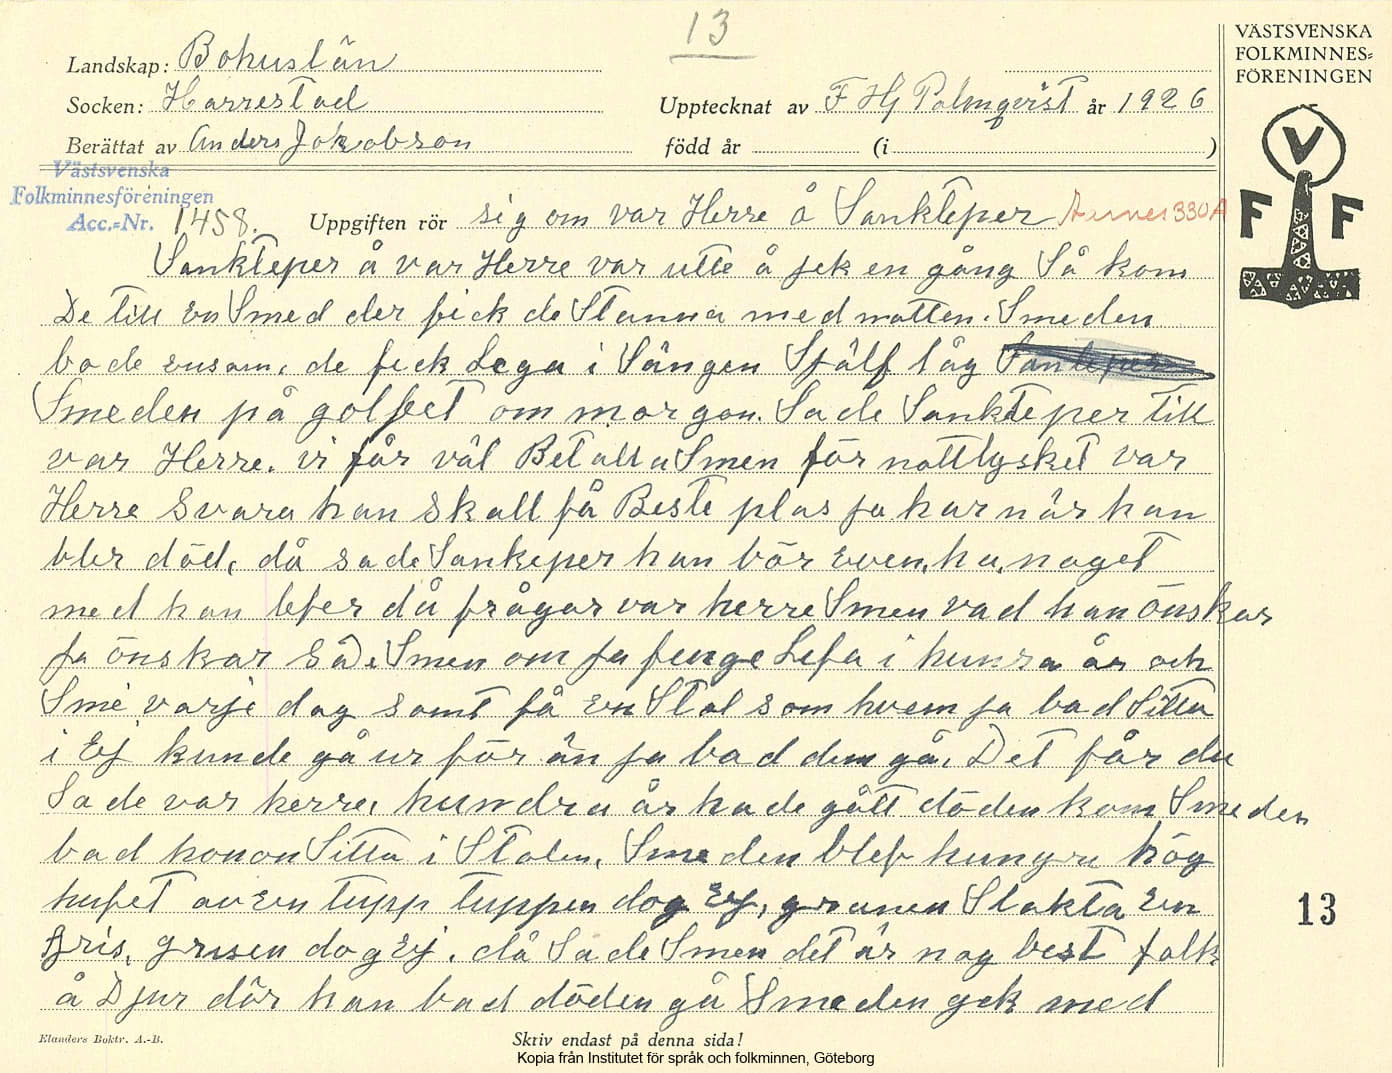 13
VÄSTSVENSKA
FOLKMINNES=
FÖRENINGEN
Landskap: Bohuslän
Socken: Harrestad
Upptecknat av F Hj Palmqvist år 1926
Berättat av Anders Jakobson
född år (i )
Västsvenska
Folkminnesföreningen
Acc.=Nr. 1458.
V
F F
Uppgiften rör sig om var Herre å Sankteper Aarnes 330A
Sankteper å var Herre var utte å jek en gång Så kom
De till en Smed der fick de Stanna med natten. Smeden
bade ensam, de feck Lega i Sängen Sjálf låg
Smeden på golfvet om morgon. Sade Sankteper till
var Herre. vi får väl Betalla Smen för nattlysket var
Herre Svara han skall få Beste plas ja har når han
bler död, då sade Sankeper han bör även ha naget
med han lefer då frågar var herre Smen vad han önskar
Ja önskar Sade Smen om ja fenge Lefa i hunra år och
Smé varje dag samt få en Stol som hvem ja bad Sitta
i Ej kunde gå ur för än ja bad dem gå. Det får du
Sade var herre, hundra år hade gått döden kom Smeden
bad honon Sitta i Stolen, Smeden blef hungru hög
hufet av en tupp tuppen dog Ej, granen Slakta En
gris, grisen dog Ej. då Sade Smen det är nog best folk
å Djur dör han bad döden gå Smeden gek med
13
Elanders Boktr. A.-B.
Skriv endast på denna sida!
Kopia från Institutet för språk och folkminnen, Göteborg